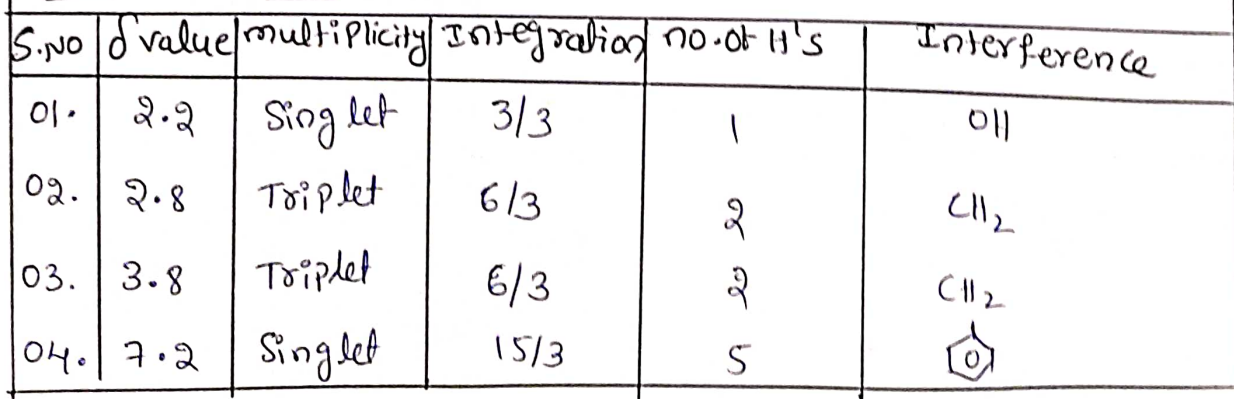 S.No δ value multiplicity Integration no.of H's Interference
01. 2.2 Singlet 3/3 1 OH
02. 2.8 Triplet 6/3 2 CH₂
03. 3.8 Triplet 6/3 2 CH₂
04. 7.2 Singlet 15/3 5